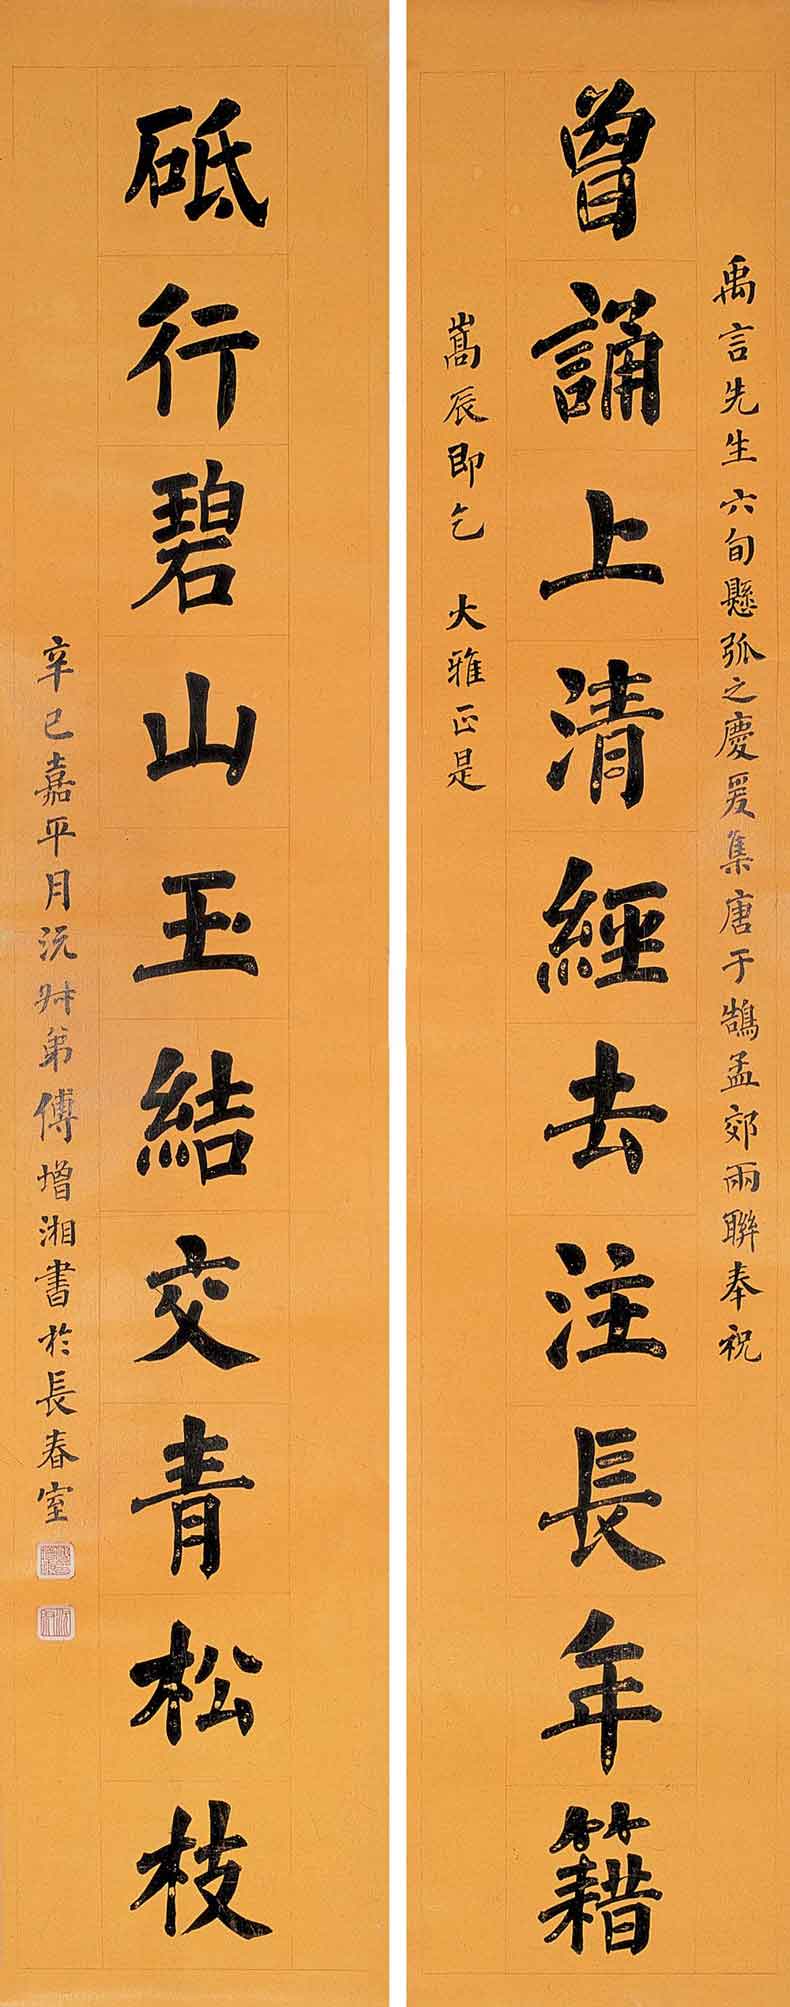 禹言先生六旬懸弧之慶爰集唐于鵠孟郊兩聯奉祝
曾誦上清經去注長年籍
嵩辰即乞 大雅正是
砥行碧山玉結交青松枝
辛巳嘉平月沅叔弟傅增湘書於長春室